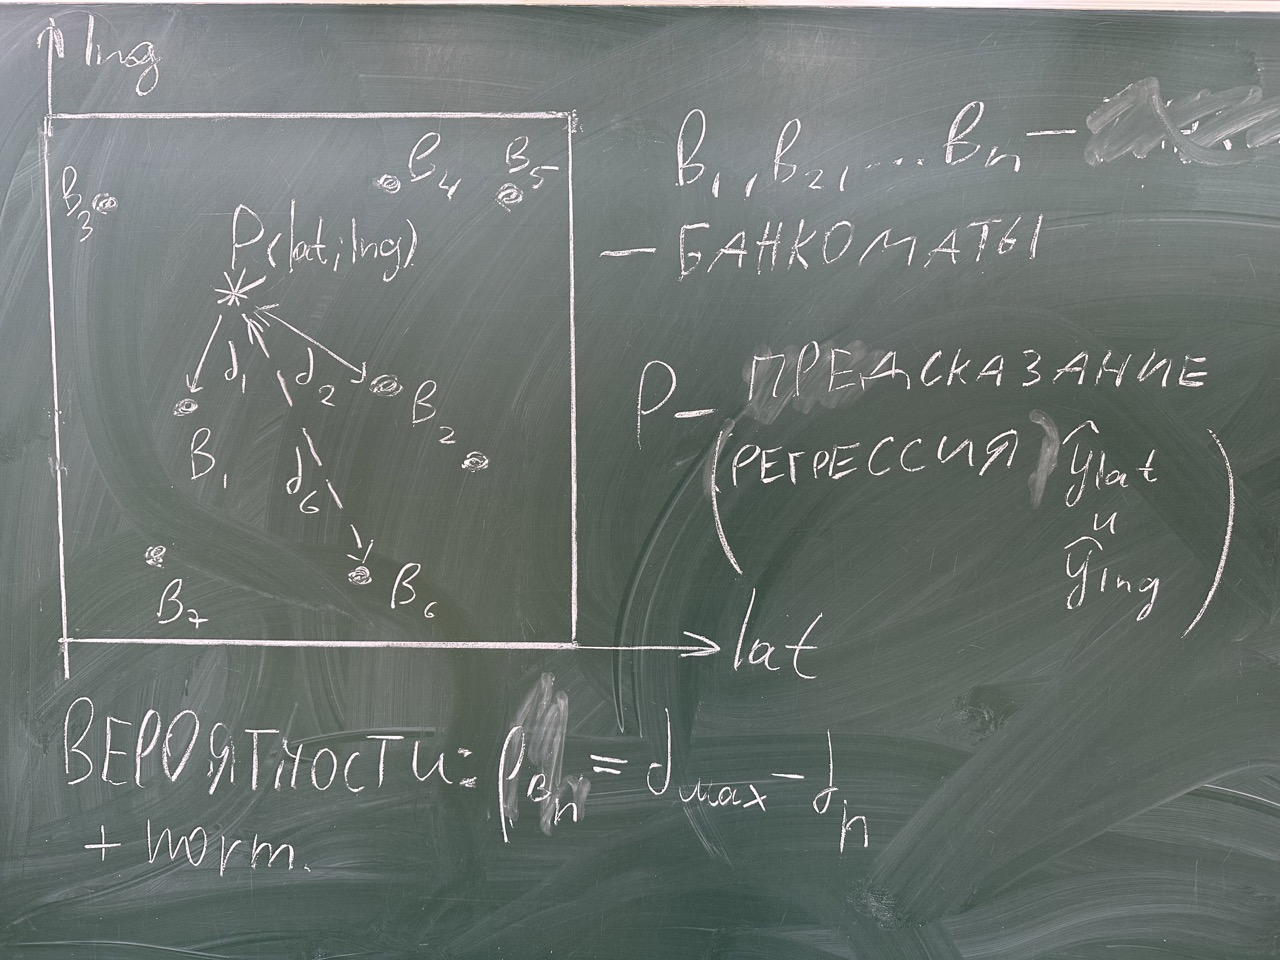 lng
B₃
B₄
B₅
P(lat; lng)
d₁
d₂
B₁
B₂
d₆
B₇
B₆
lat
B₁, B₂, ... Bn –
– БАНКОМАТЫ
P – ПРЕДСКАЗАНИЕ
(РЕГРЕССИЯ ŷlat
и
ŷlng)
ВЕРОЯТНОСТИ: pBn = dmax – dn
+ norm.